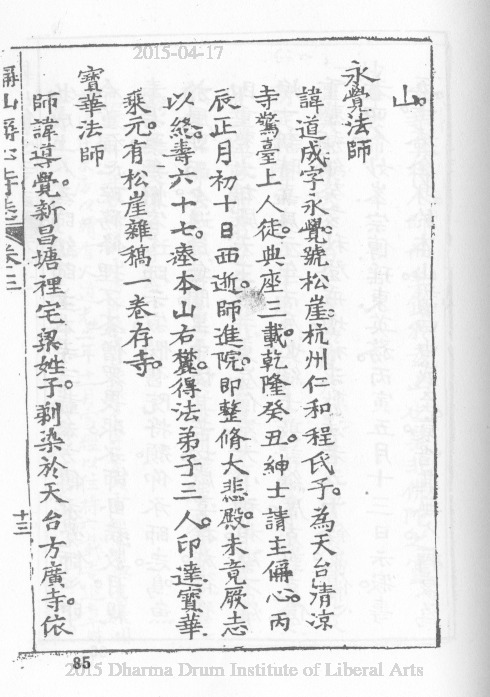 2015-04-17
山。
永覺法師
諱道成字永覺。號松崖。杭州仁和程氏子。為天台清涼
寺驚臺上人徒。典座三載乾隆癸丑。紳士請主偋心。丙
辰正月初十日西逝。師進院。即整脩大悲殿。未竟厥志
以終。壽六十七。塟本山右麓。得法弟子三人。印達寶華
乘元有松崖雜稿一卷存寺。
寶華法師
師諱導覺。新昌塘裡宅梁姓子。剃染於天台方廣寺。依
卷二
十三
85
2015 Dharma Drum Institute of Liberal Arts